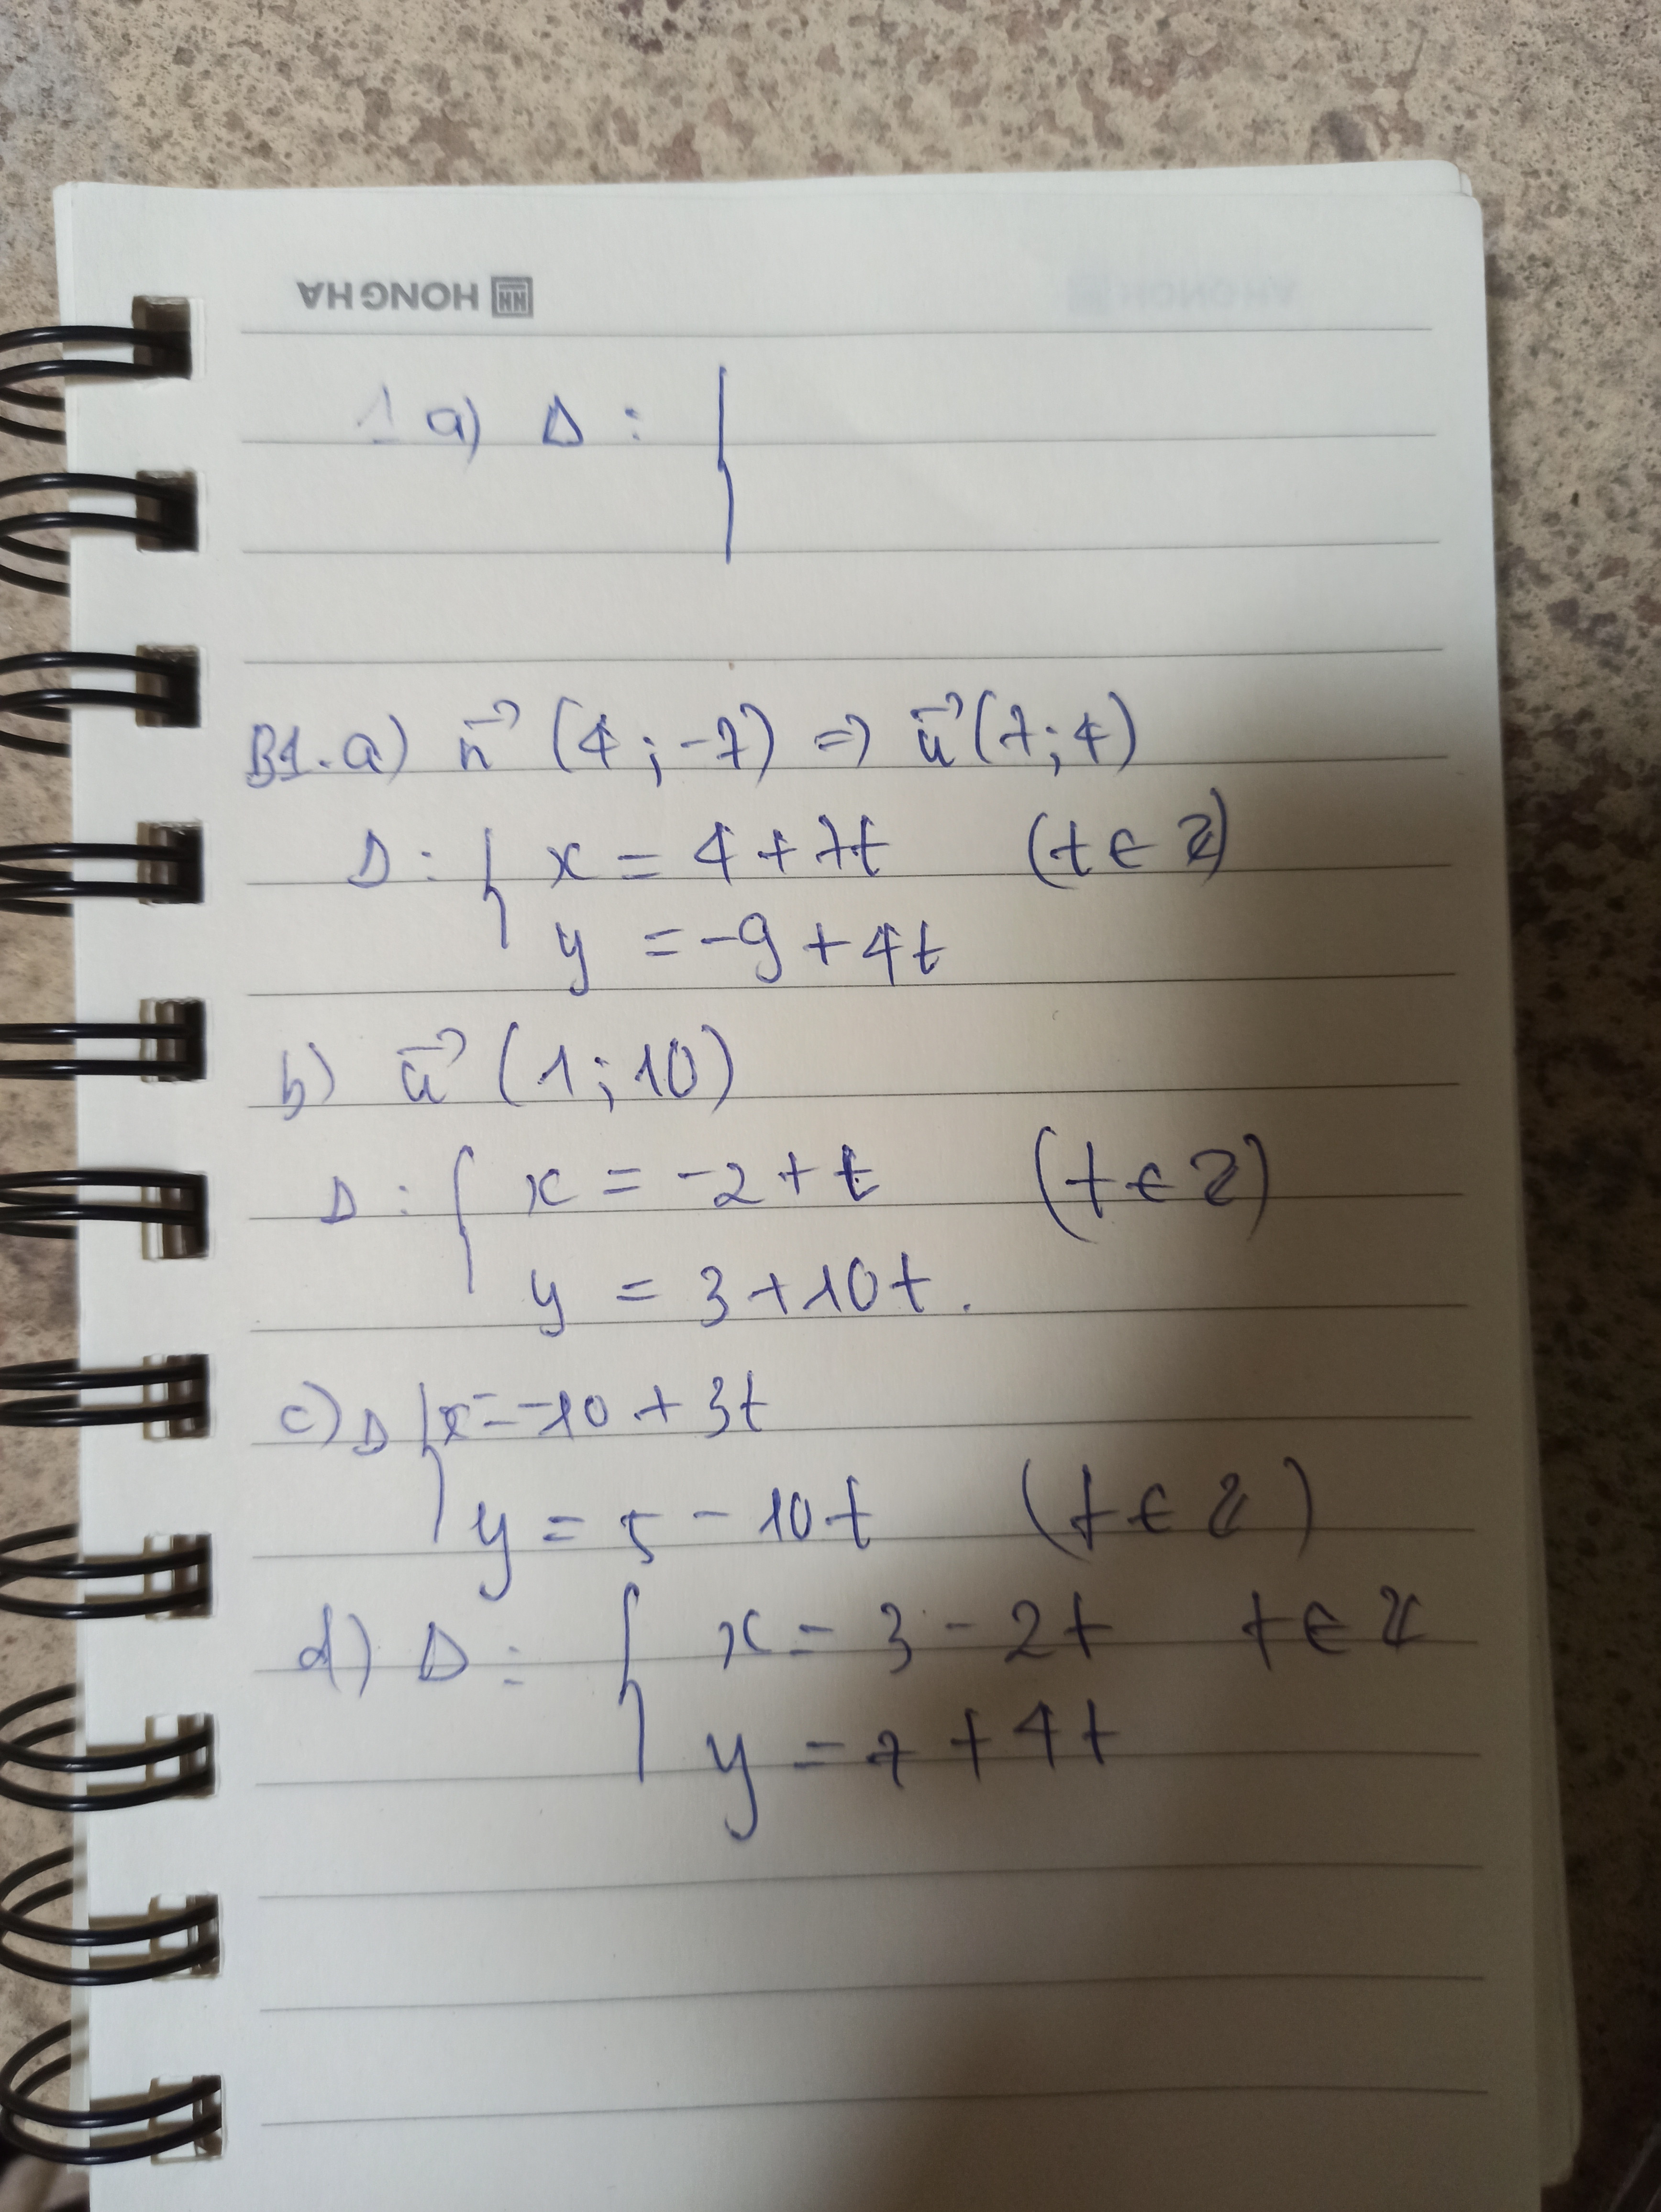 HONG HA
1 a) Δ : {
B1. a) n⃗ (4 ; -7) => u⃗ (7 ; 4)
Δ : { x = 4 + 7t (t ∈ Z)
y = -9 + 4t
b) u⃗ (1 ; 10)
Δ : { x = -2 + t (t ∈ Z)
y = 3 + 10t.
c) Δ { x = -10 + 3t
y = 5 - 10t (t ∈ Z)
d) Δ : { x = 3 - 2t t ∈ Z
y = 7 + 4t